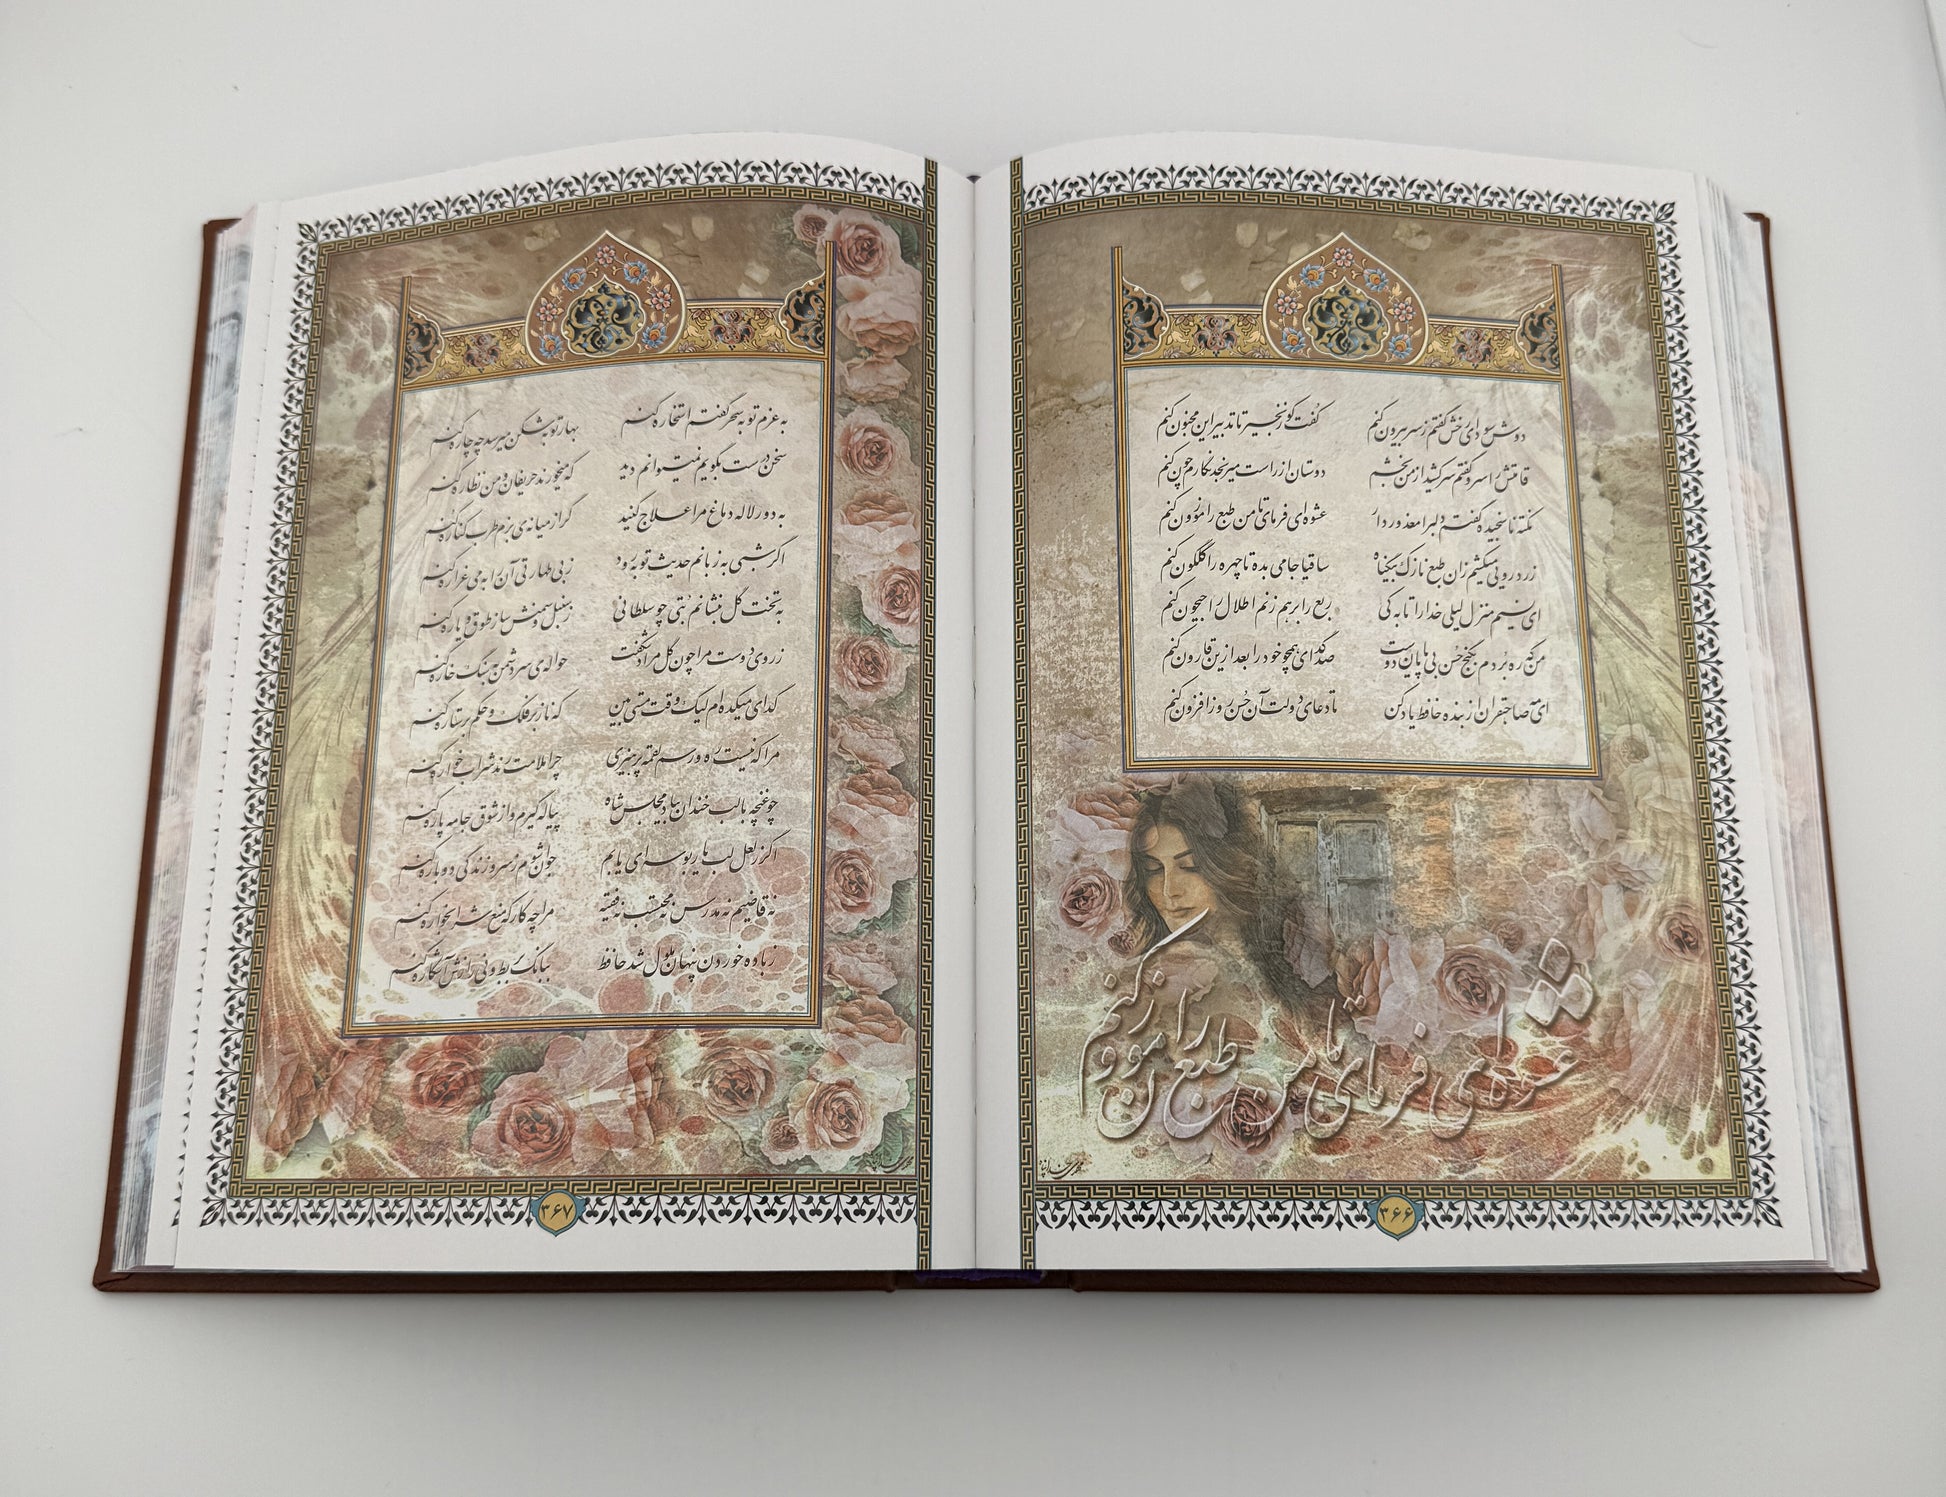 دوش سودای رخش گفتم ز سر بیرون کنم
گفت کو زنجیر تا تدبیر این مجنون کنم
قامتش را سرو گفتم سر کشید از من بخشم
دوستان از راست میرنجد نگارم چون کنم
نکته ناسنجیده گفتم دلبرا معذور دار
عشوه‌ای فرمای تا من طبع را موزون کنم
زردرویی میکشم زان طبع نازک بیگناه
ساقیا جامی بده تا چهره را گلگون کنم
ای نسیم منزل لیلی خدا را تا به کی
ربع را برهم زنم اطلال را جیحون کنم
من که ره بردم بگنج حُسن بی پایان دوست
صد گدای همچو خود را بعد ازین قارون کنم
ای مه صاحبقران از بنده حافظ یاد کن
تا دعای دولت آن حُسن روزافزون کنم
عشوه‌ای فرمای تا من طبع را موزون کنم
۳۶۶
به عزم توبه سحر گفتم استخاره کنم
بهار توبه شکن میرسد چه چاره کنم
سخن درست بگویم نمیتوانم دید
که میخورند حریفان و من نظاره کنم
به دور لاله دماغ مرا علاج کنید
گر از میانه‌ی بزم طرب کناره کنم
اگر شبی به زبانم حدیث توبه رود
ز بی طهارتی آن را به می غراره کنم
به تخت گل بنشانم بُتی چو سلطانی
ز سنبل و سمنش ساز طوق و یاره کنم
ز روی دوست مرا چون گل مراد شکفت
حواله‌ی سر دشمن بسنگ خاره کنم
گدای میکده‌ام لیک وقت مستی بین
که ناز بر فلک و حکم بر ستاره کنم
مرا که نیست ره و رسم لقمه پرهیزی
چرا ملامت رند شرابخواره کنم
چو غنچه با لب خندان بیاد مجلس شاه
پیاله گیرم و از شوق جامه پاره کنم
اگر ز لعل لب یار بوسه‌ای یابم
جوان شوم ز سر و زندگی دوباره کنم
نه قاضیم نه مدرس نه محتسب نه فقیه
مرا چه کار که منع شرابخواره کنم
ز باده خوردن پنهان ملول شد حافظ
ببانگ بربط و نی رازش آشکاره کنم
۳۶۷